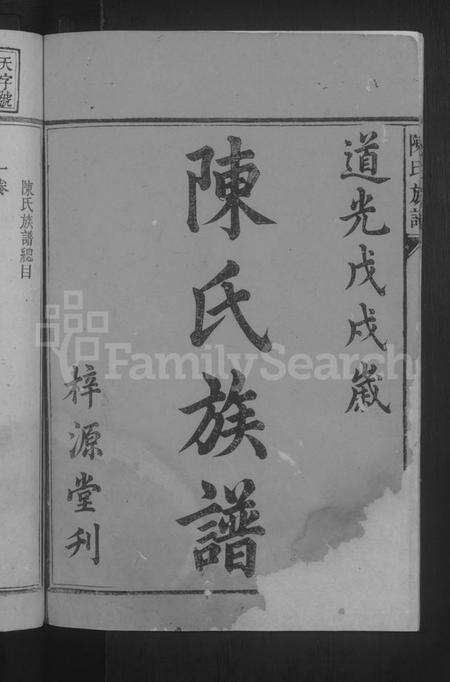 陳氏族譜
道光戊戌歲
陳氏族譜
梓源堂刊
天字號
一卷
陳氏族譜總目
FamilySearch